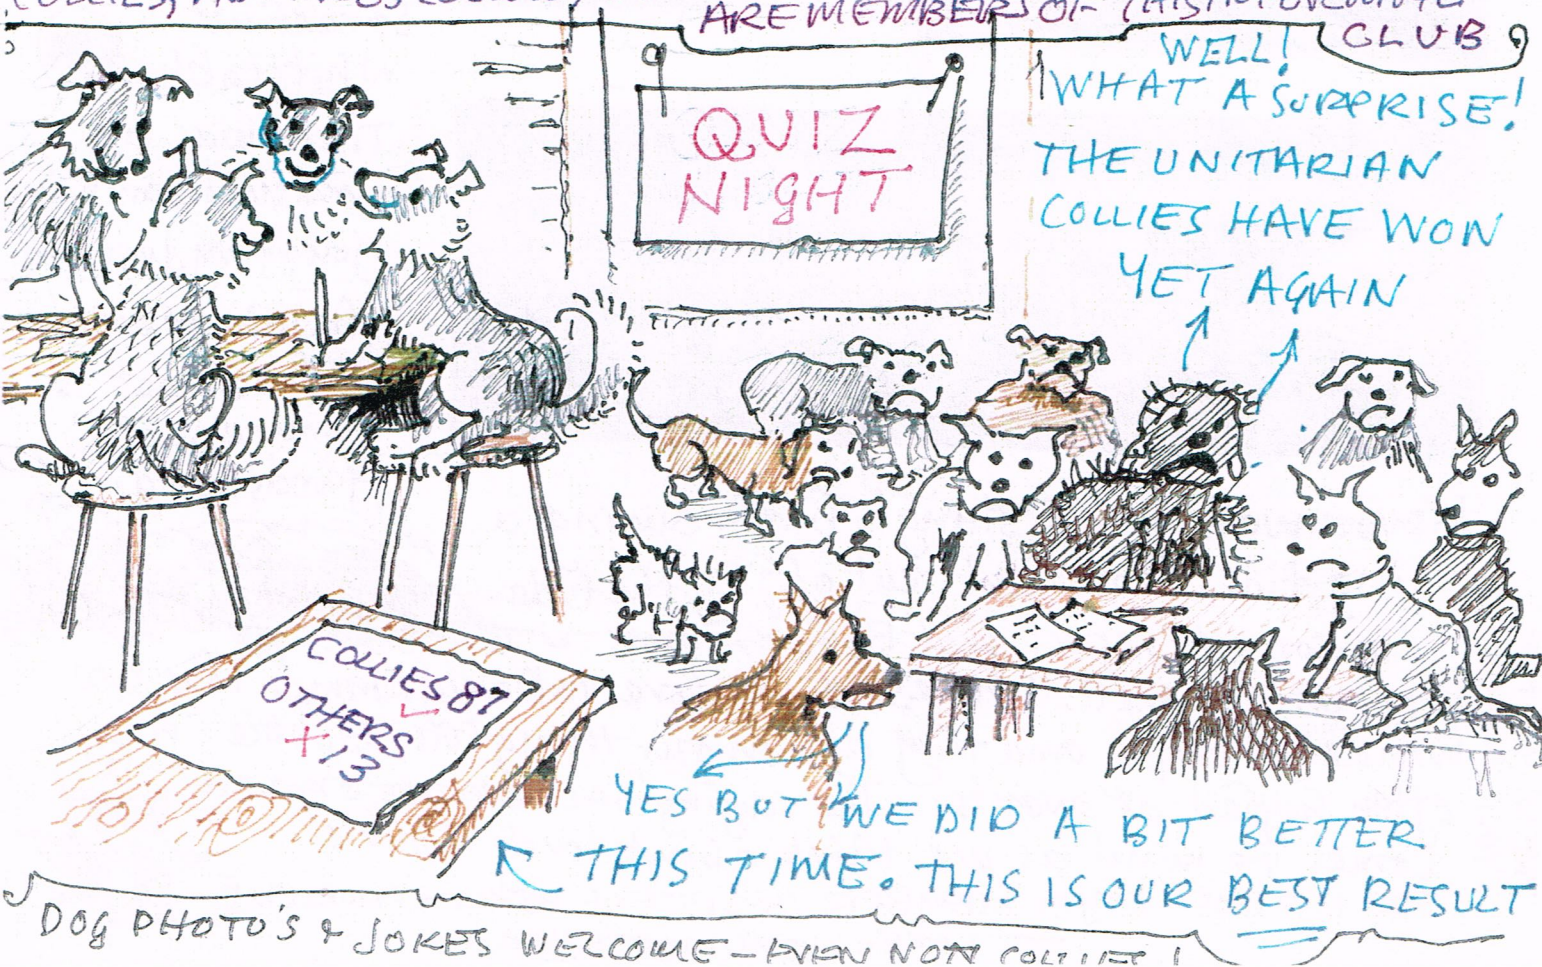 COLLIES,
ARE MEMBERS OF THIS
CLUB
QUIZ
NIGHT
WELL!
WHAT A SURPRISE!
THE UNITARIAN
COLLIES HAVE WON
YET AGAIN
COLLIES 87
OTHERS
13
YES BUT WE DID A BIT BETTER
THIS TIME. THIS IS OUR BEST RESULT
DOG PHOTO'S & JOKES WELCOME - EVEN NON COLLIES!